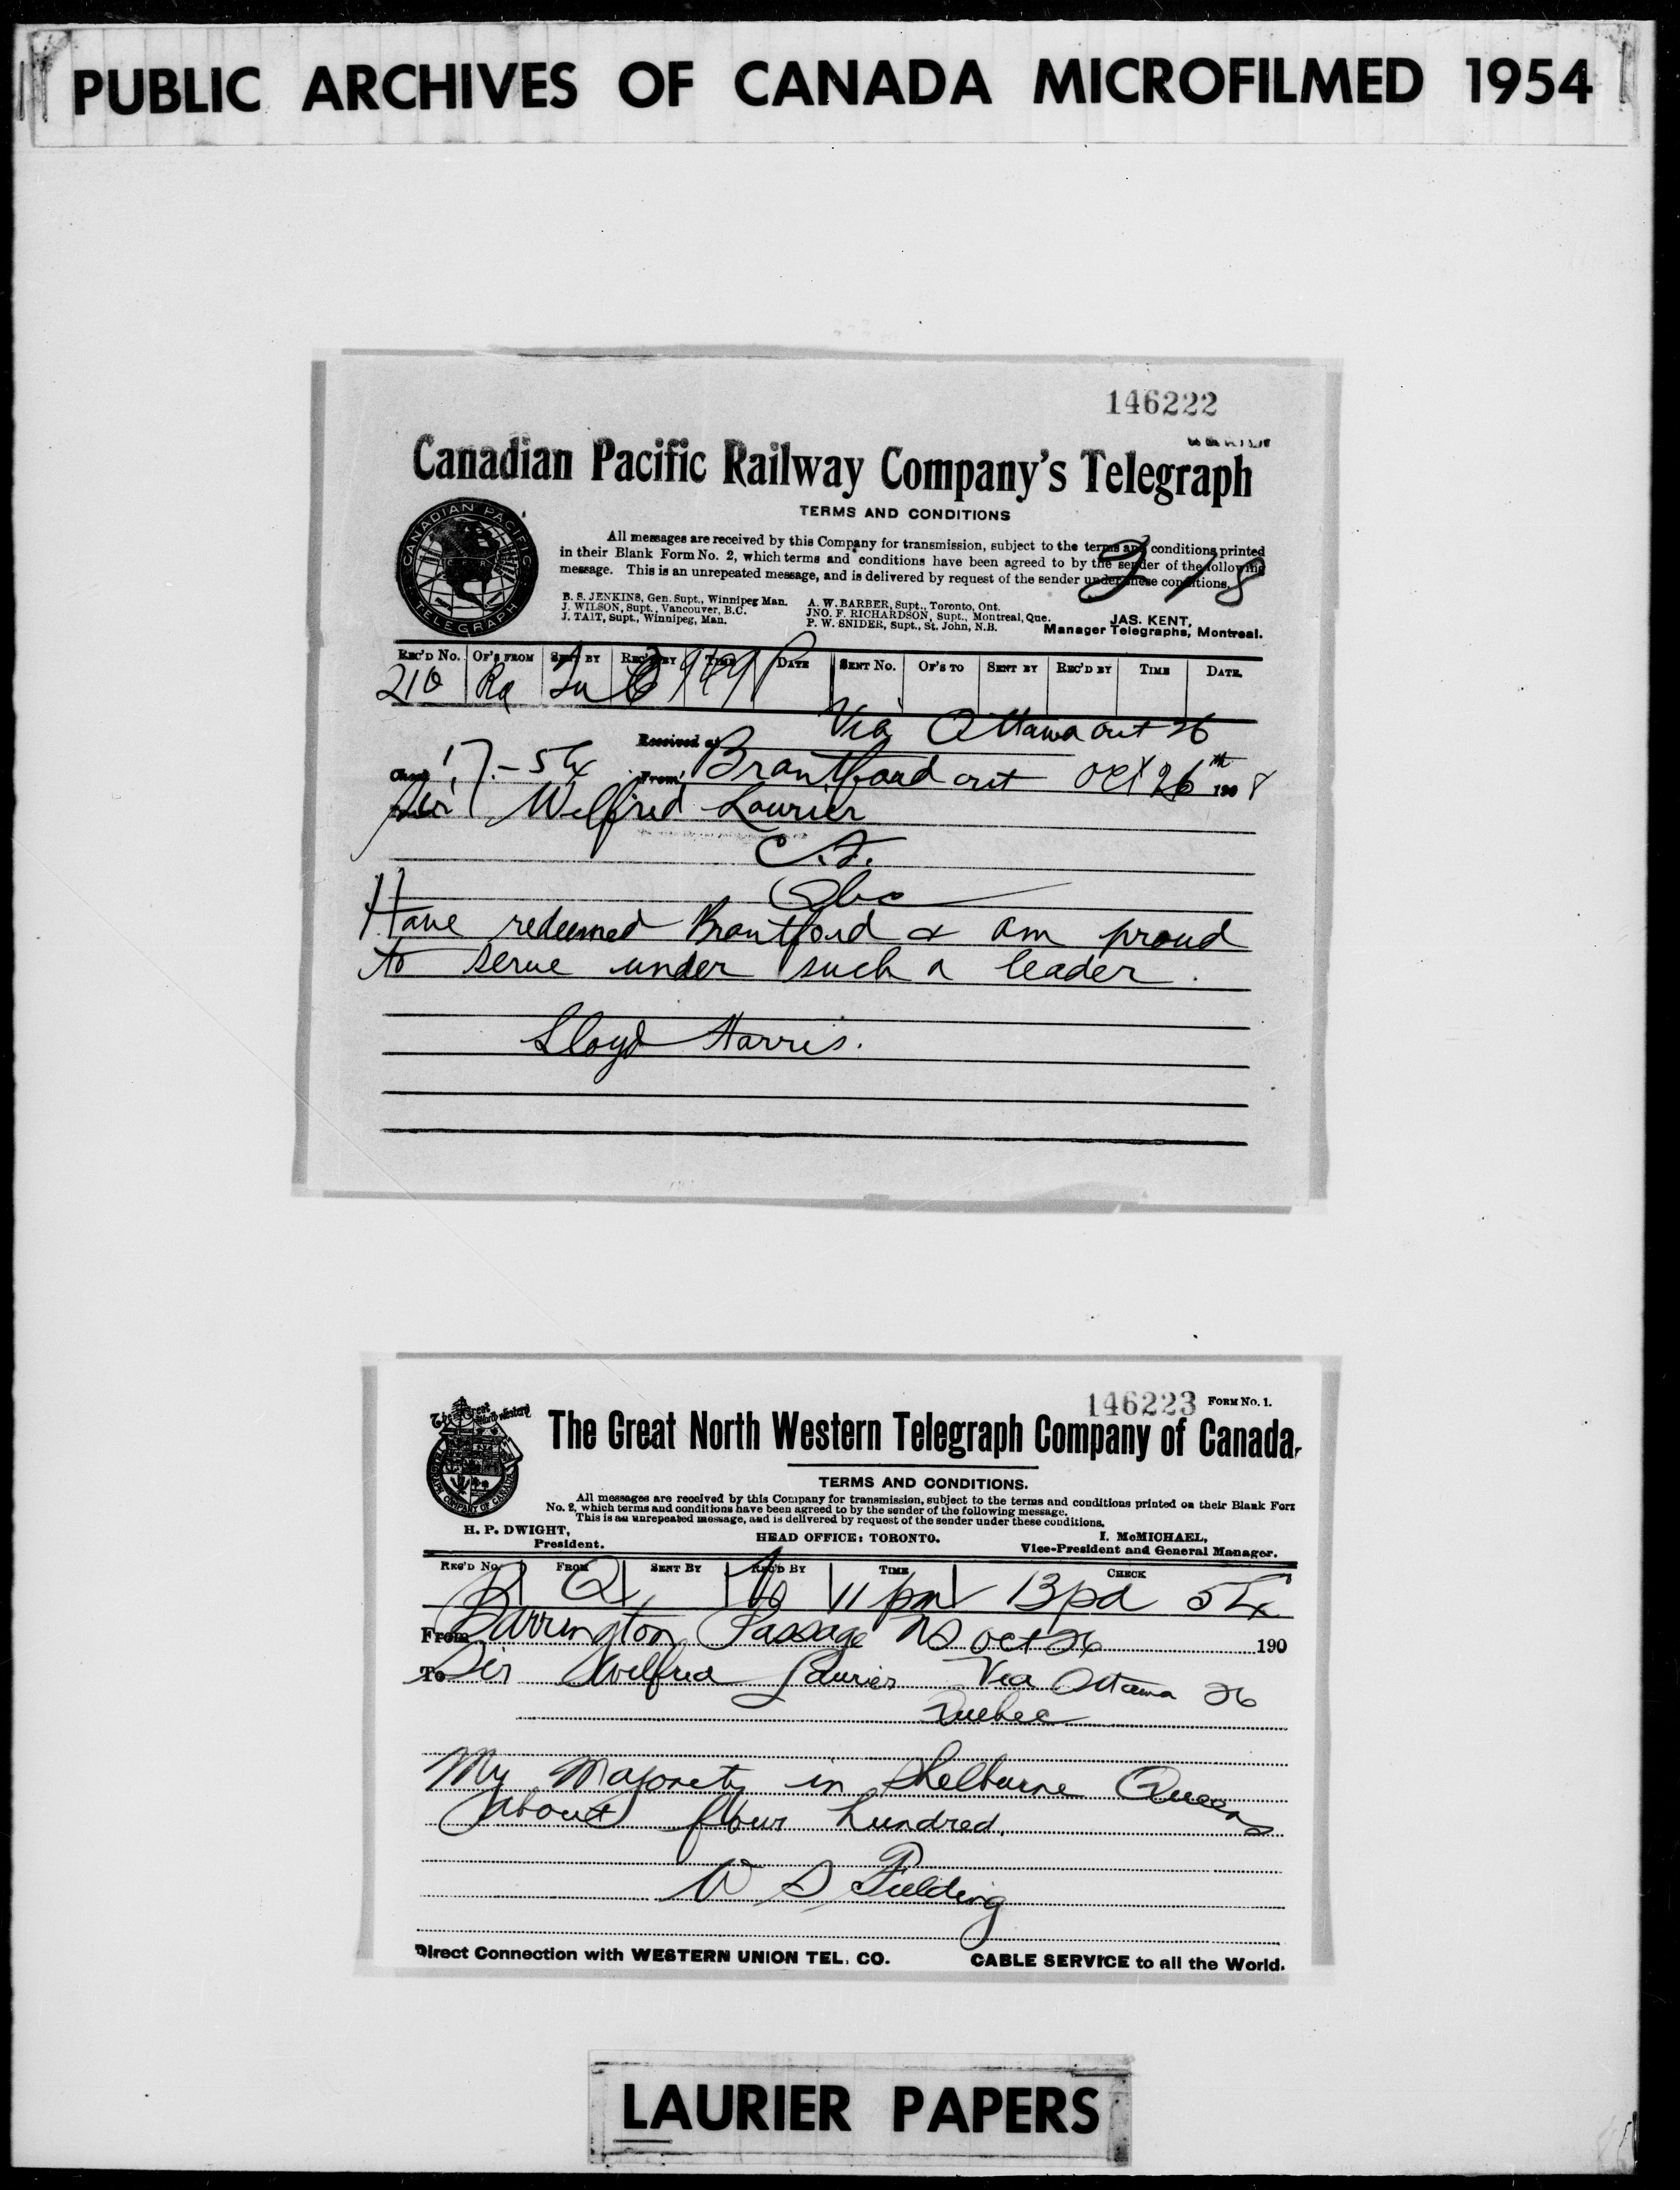 PUBLIC ARCHIVES OF CANADA MICROFILMED 1954
146222
Canadian Pacific Railway Company's Telegraph
TERMS AND CONDITIONS
CANADIAN PACIFIC
TELEGRAPH
All messages are received by this Company for transmission, subject to the terms and conditions printed
in their Blank Form No. 2, which terms and conditions have been agreed to by the sender of the following
message. This is an unrepeated message, and is delivered by request of the sender under these conditions.
B. S. JENKINS, Gen. Supt., Winnipeg Man.
J. WILSON, Supt., Vancouver, B.C.
J. TAIT, Supt., Winnipeg, Man.
A. W. BARBER, Supt., Toronto, Ont.
JNO. F. RICHARDSON, Supt., Montreal, Que.
P. W. SNIDER, Supt., St. John, N.B.
JAS. KENT,
Manager Telegraphs, Montreal.
REC'D No. OF'S FROM SENT BY REC'D BY TIME DATE SENT No. OF'S TO SENT BY REC'D BY TIME DATE.
210 Ra
Via Ottawa ont 26
Received at
From Brantford ont Oct 26th 1908
Sir Wilfred Laurier
Qbc
Have redeemed Brantford & am proud
to serve under such a leader.
Lloyd Harris.
146223 FORM No. 1.
The Great North Western
TELEGRAPH COMPANY OF CANADA
The Great North Western Telegraph Company of Canada,
TERMS AND CONDITIONS.
All messages are received by this Company for transmission, subject to the terms and conditions printed on their Blank Form
No. 2, which terms and conditions have been agreed to by the sender of the following message.
This is an unrepeated message, and is delivered by request of the sender under these conditions.
H. P. DWIGHT,
President.
HEAD OFFICE: TORONTO.
I. McMICHAEL,
Vice-President and General Manager.
REC'D No. FROM SENT BY REC'D BY TIME CHECK
Q 11 pm 13 pd
From Barrington Passage NS Oct 26 190
To Sir Wilfred Laurier Via Ottawa 26
Quebec
My Majority in Shelburne Queens
about four hundred.
W S Fielding
Direct Connection with WESTERN UNION TEL. CO. CABLE SERVICE to all the World.
LAURIER PAPERS